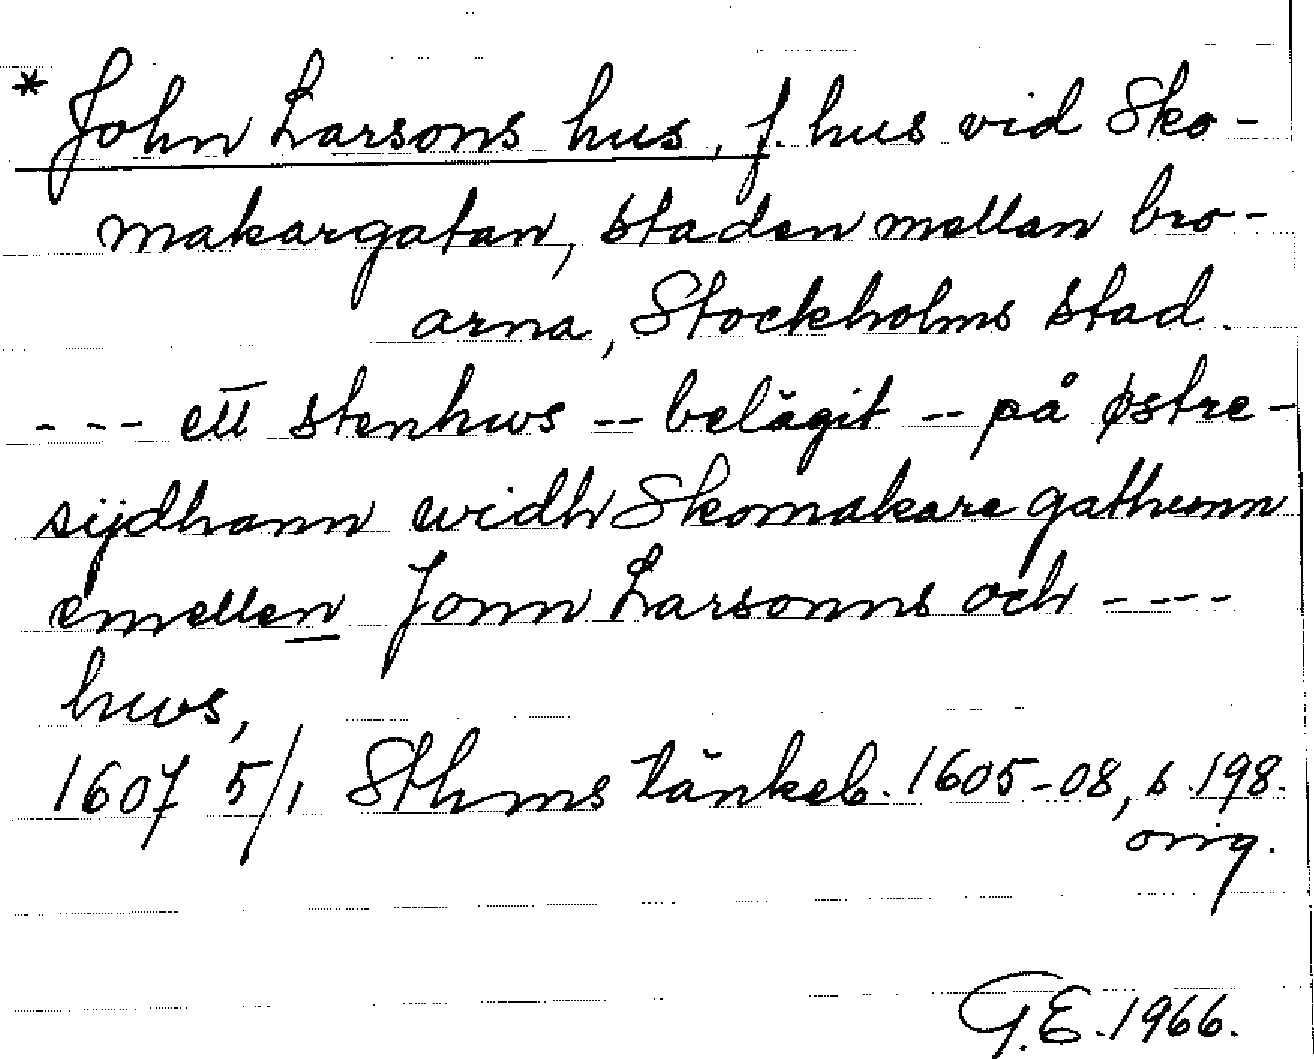 * John Larsons hus, f. hus vid Sko-
makargatan, staden mellan bro-
arna, Stockholms stad.
--- ett stenhws -- belägit -- på østre-
sijdhann widh Skomakare gathunn
emellen Jonn Larsonns och ----
hws,
1607 5/1 Sthms tänkeb. 1605-08, s. 198.
orig.
G.E. 1966.